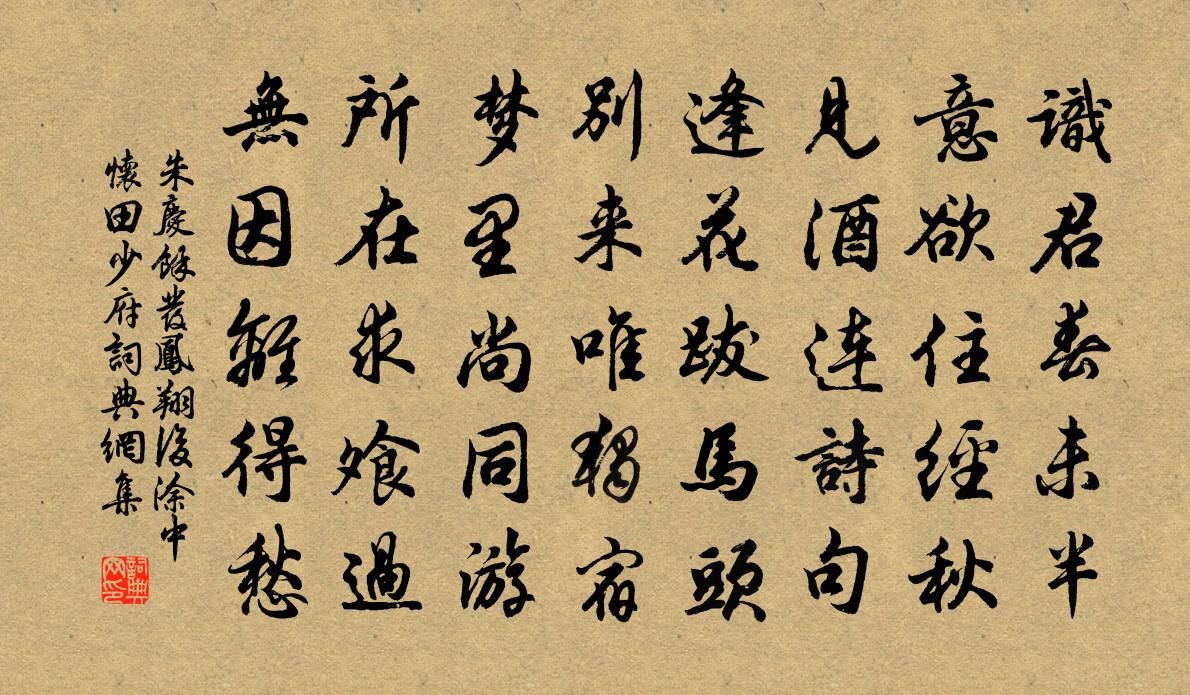 識君春未半
意欲住經秋
見酒连詩句
逢花跋馬頭
別来唯獨宿
梦里尚同游
所在求飧過
無因離得愁
朱慶餘發鳳翔後涂中
懷田少府詞典網集
詞典
网印